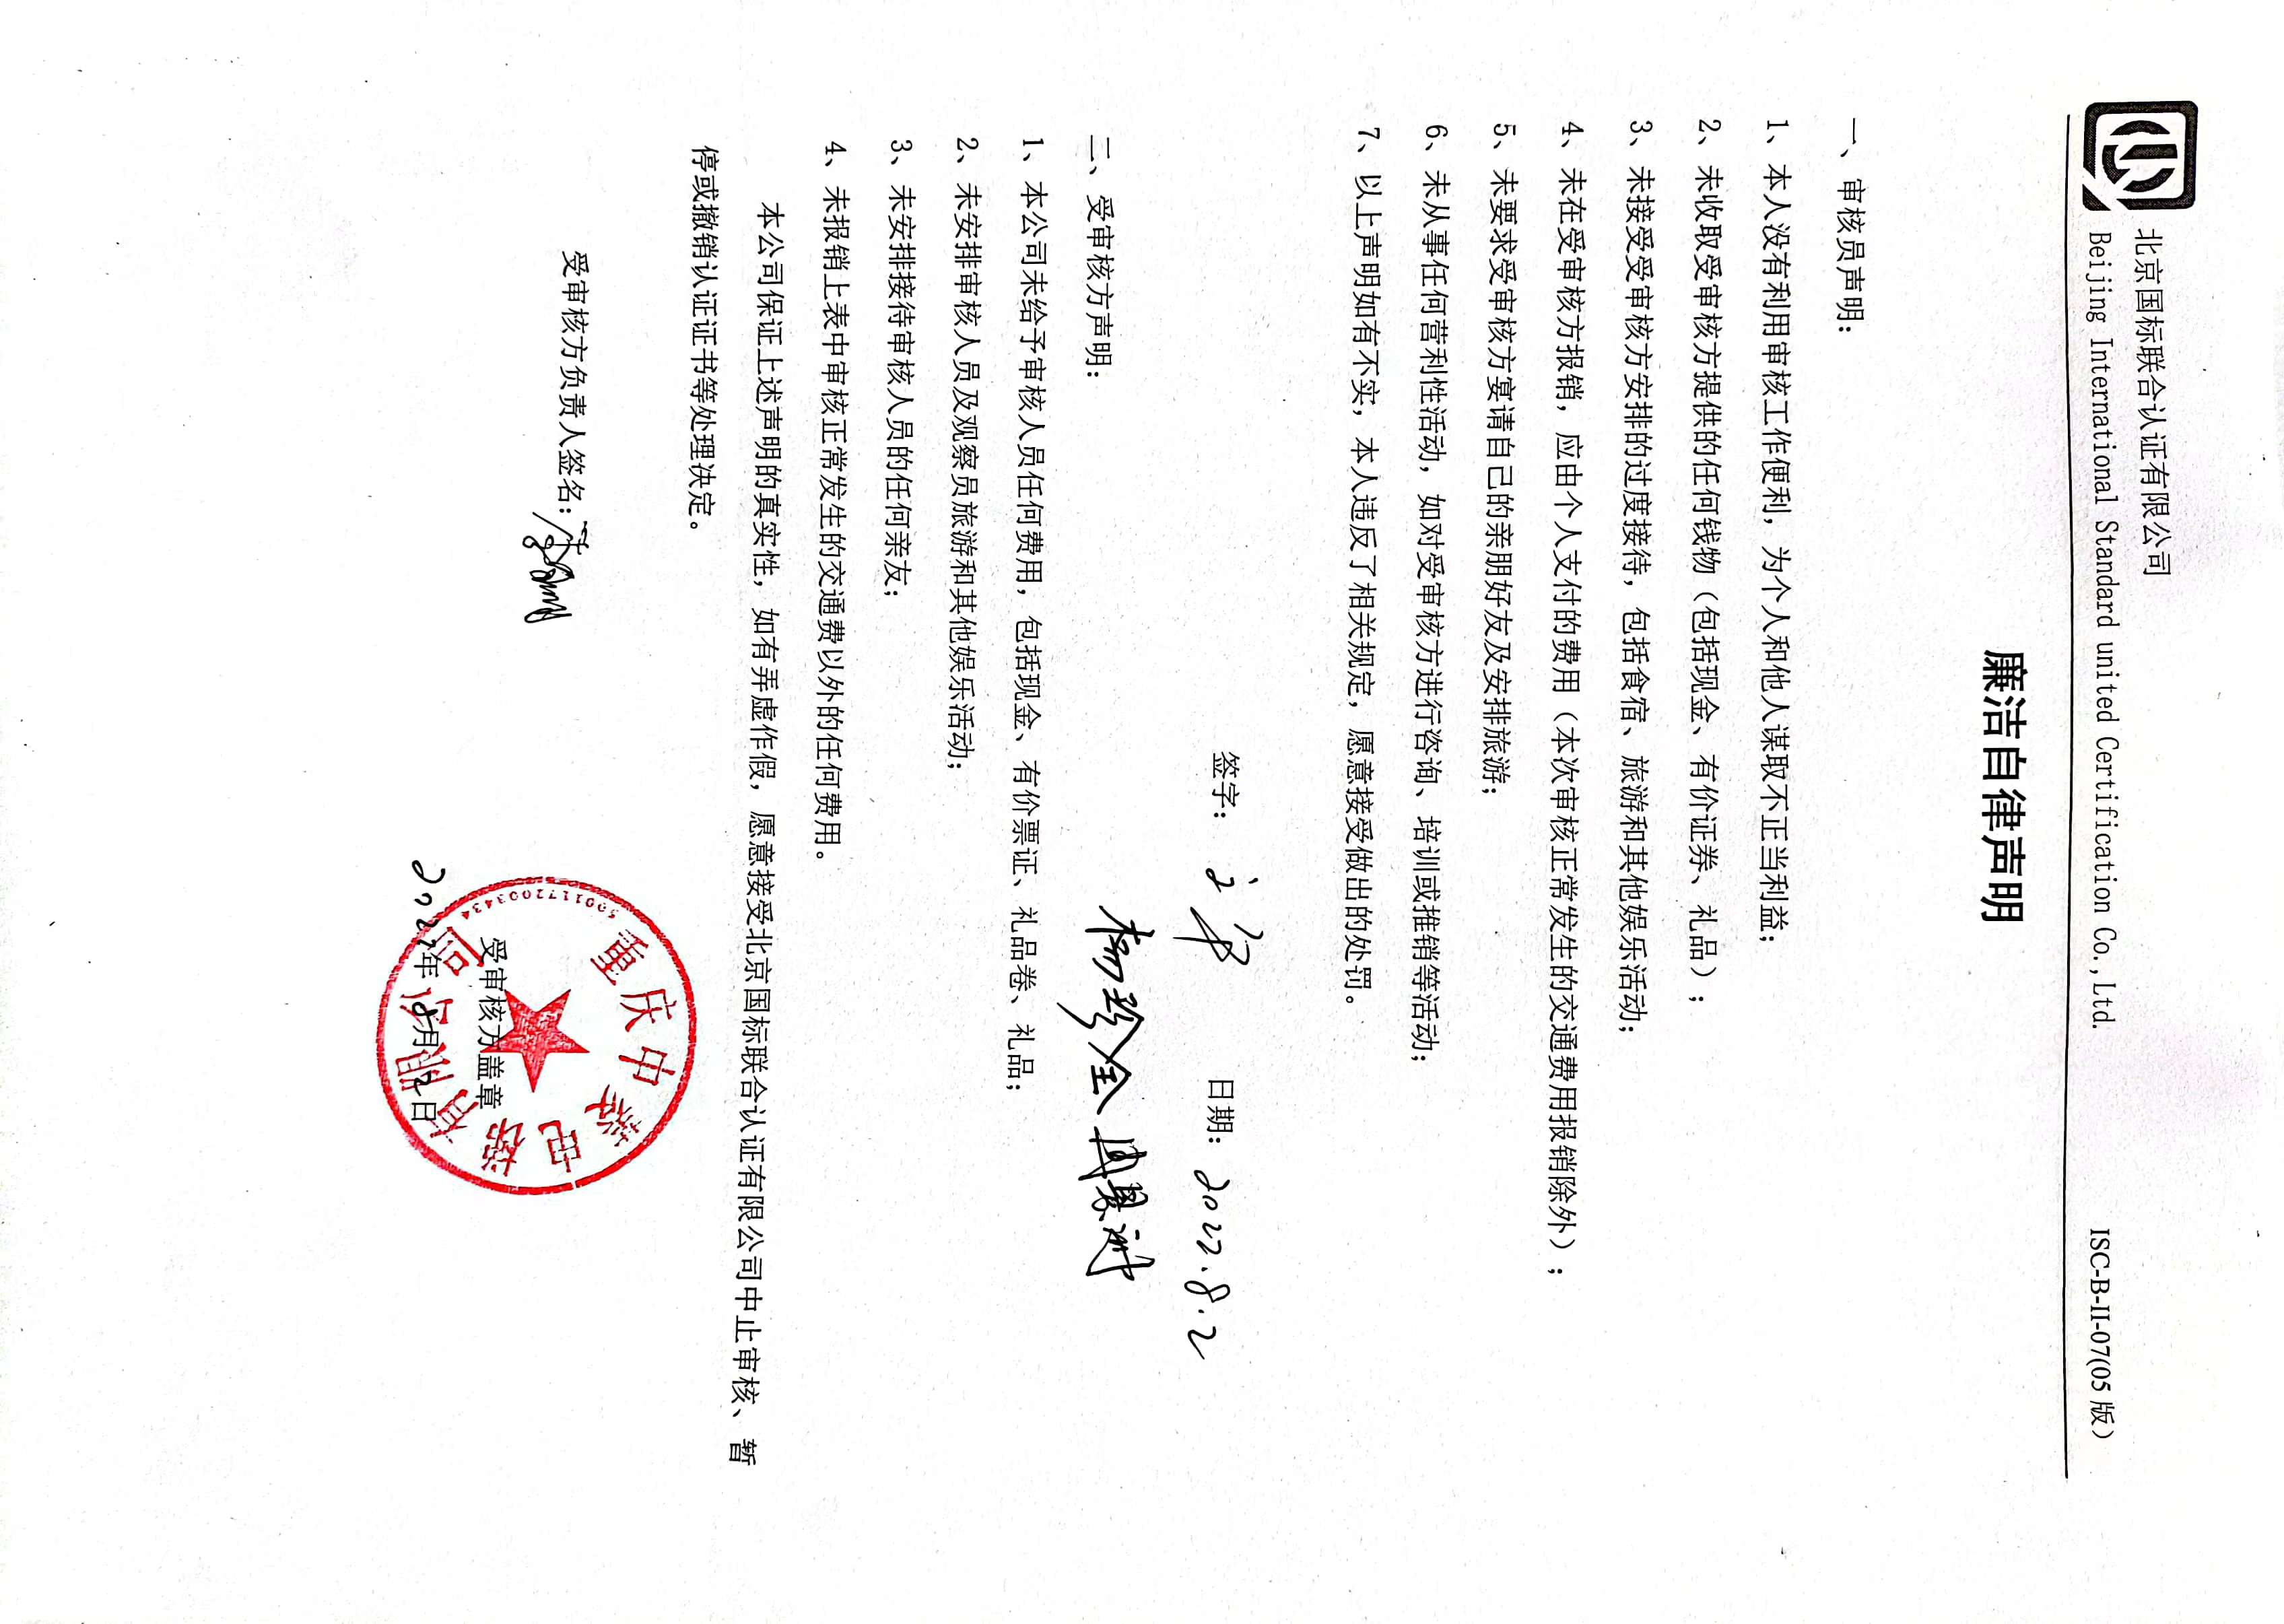 北京国标联合认证有限公司
Beijing International Standard united Certification Co.,Ltd. ISC-B-II-07(05 版)
廉洁自律声明
一、审核员声明：
1、本人没有利用审核工作便利，为个人和他人谋取不正当利益；
2、未收取受审核方提供的任何钱物（包括现金、有价证券、礼品）；
3、未接受受审核方安排的过度接待，包括食宿、旅游和其他娱乐活动；
4、未在受审核方报销，应由个人支付的费用（本次审核正常发生的交通费用报销除外）；
5、未要求受审核方宴请自己的亲朋好友及安排旅游；
6、未从事任何营利性活动，如对受审核方进行咨询、培训或推销等活动；
7、以上声明如有不实，本人违反了相关规定，愿意接受做出的处罚。
签字： 日期：2022.8.2
杨珍全
二、受审核方声明：
1、本公司未给予审核人员任何费用，包括现金、有价票证、礼品卷、礼品；
2、未安排审核人员及观察员旅游和其他娱乐活动；
3、未安排接待审核人员的任何亲友；
4、未报销上表中审核正常发生的交通费以外的任何费用。
本公司保证上述声明的真实性，如有弄虚作假，愿意接受北京国标联合认证有限公司中止审核、暂
停或撤销认证证书等处理决定。
受审核方负责人签名：
重庆中菱电梯有限公司
受审核方盖章
2022年8月2日